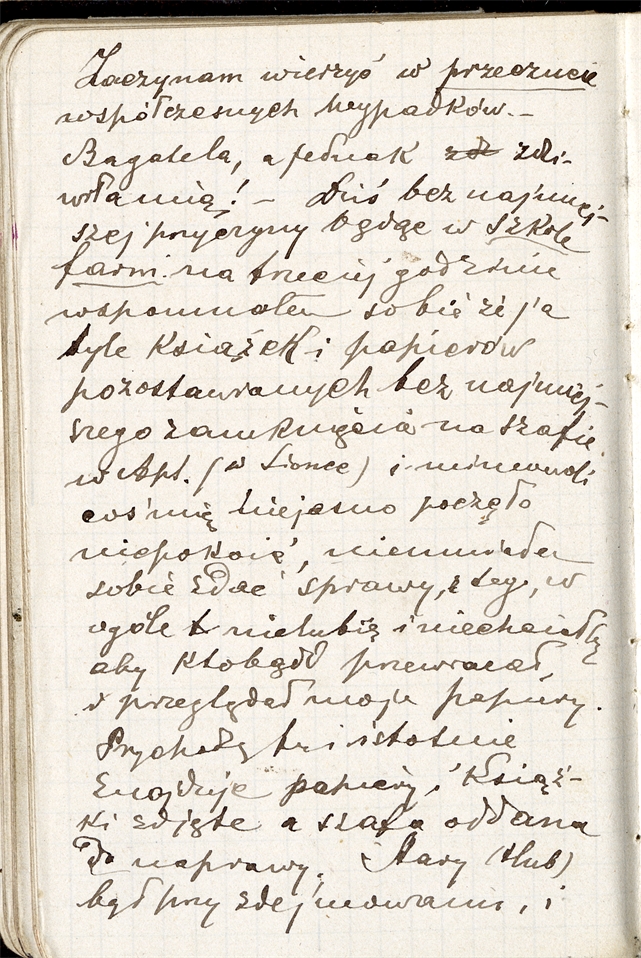 Zaczynam wierzyć w przeczucie
współczesnych wypadków. –
Bagatela, a jednak zdzi-
wiła mię! – Dziś bez najmniej-
szej przyczyny będąc w szkole
farm. na trzeciej godzinie
wspomniałem sobie że ja
tyle książek i papierów
pozostawionych bez najmniej-
szego zamknięcia na szafie
w Apt. ( ) i mimowoli
coś mię niejasno poczęło
niepokoić, nieumiałem
sobie zdać sprawy, z tego, w
ogóle nielubię i niechciałbym
aby ktobądź przewracał
i przeglądał moje papiery.
Przychodzę tu i istotnie
znajduję papiery i książ-
ki zdjęte a szafa oddana
do naprawy. Stary
był przy zdejmowaniu, i